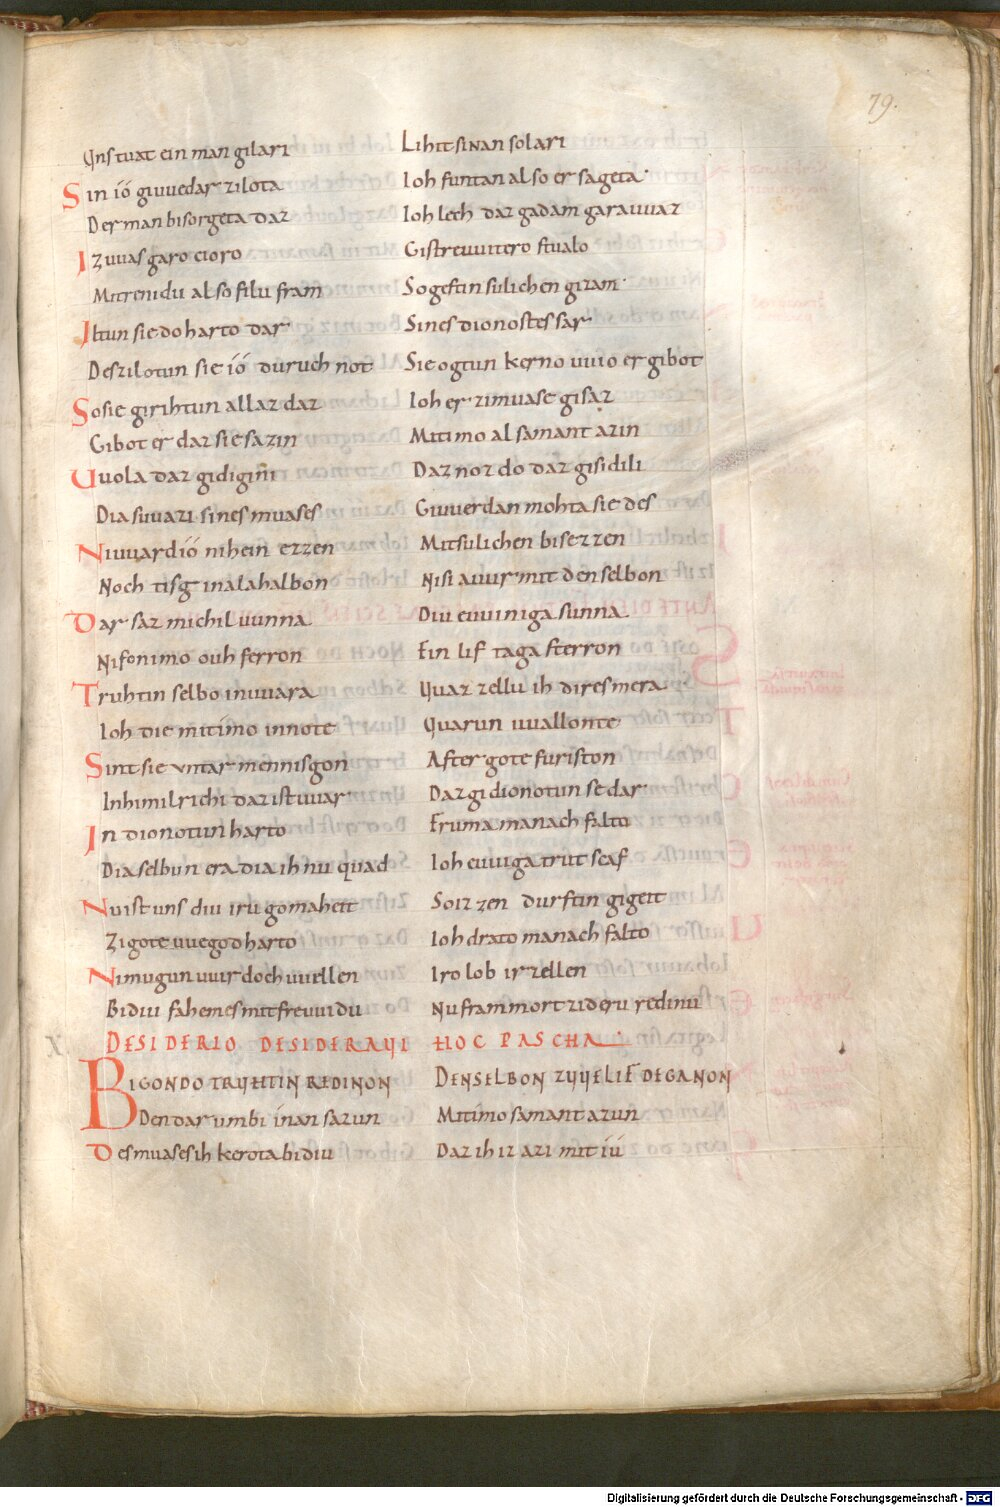 79.
Instuat ein man gilari Lihit sinan solari
Sin ió giuuedar zilota Ioh funtan al so er sageta
Der man bisorgeta daz Ioh lech daz gadam garauuaz
Iz uuas garo cioro Gistreuuitero stualo
Mit renidu al so filu fram So gestin sulichen gizam
Iltun sie do harto dar Sines dionostes sar
Des zilotun sie ió duruch not Sie ogtun kerno uuio er gibot
So sie girihtun allaz daz Ioh er zi muase gisaz
Gibot er daz sie sazin Mit imo al samant azin
Uuola daz gidigini Daz noz do daz gisidili
Dia suuazi sines muases Giuuerdan mohta sie des
Ni uuard ió nihein ezzen Mit sulichen bisezzen
Noch tisg in ala halbon Nisi auur mit den selbon
Dar saz michil uunna Diu euuiniga sunna
Ni fon imo ouh ferron Ein lif taga sterron
Truhtin selbo in uuara Uuaz zellu ih dir es mera
Ioh die mit imo in note Uuarun uuallonte
Sint sie untar mennisgon After gote furiston
In himilrichi daz ist uuar Daz gidionotun se dar
In dionotun harto Fruma managfalto
Dia selbun era dia ih nu quad Ioh euuiga trutscaf
Nu ist uns diu iru gomaheit So izzen durftin gigeit
Zi gote uuegod harto Ioh drato manachfalto
Ni mugun uuir doch uuellen Iro lob irzellen
Bidiu fahemes mit freuuidu Nu frammort zi deru redinu
X DESIDERIO DESIDERAUI HOC PASCHA
BIGONDO TRUHTIN REDINON DEN SELBON ZUUELIF DEGANON
Den dar umbi inan sazun Mit imo samant azun
Des muases ih kerota bidiu Daz ih iz azi mit iú
Digitalisierung gefördert durch die Deutsche Forschungsgemeinschaft - DFG